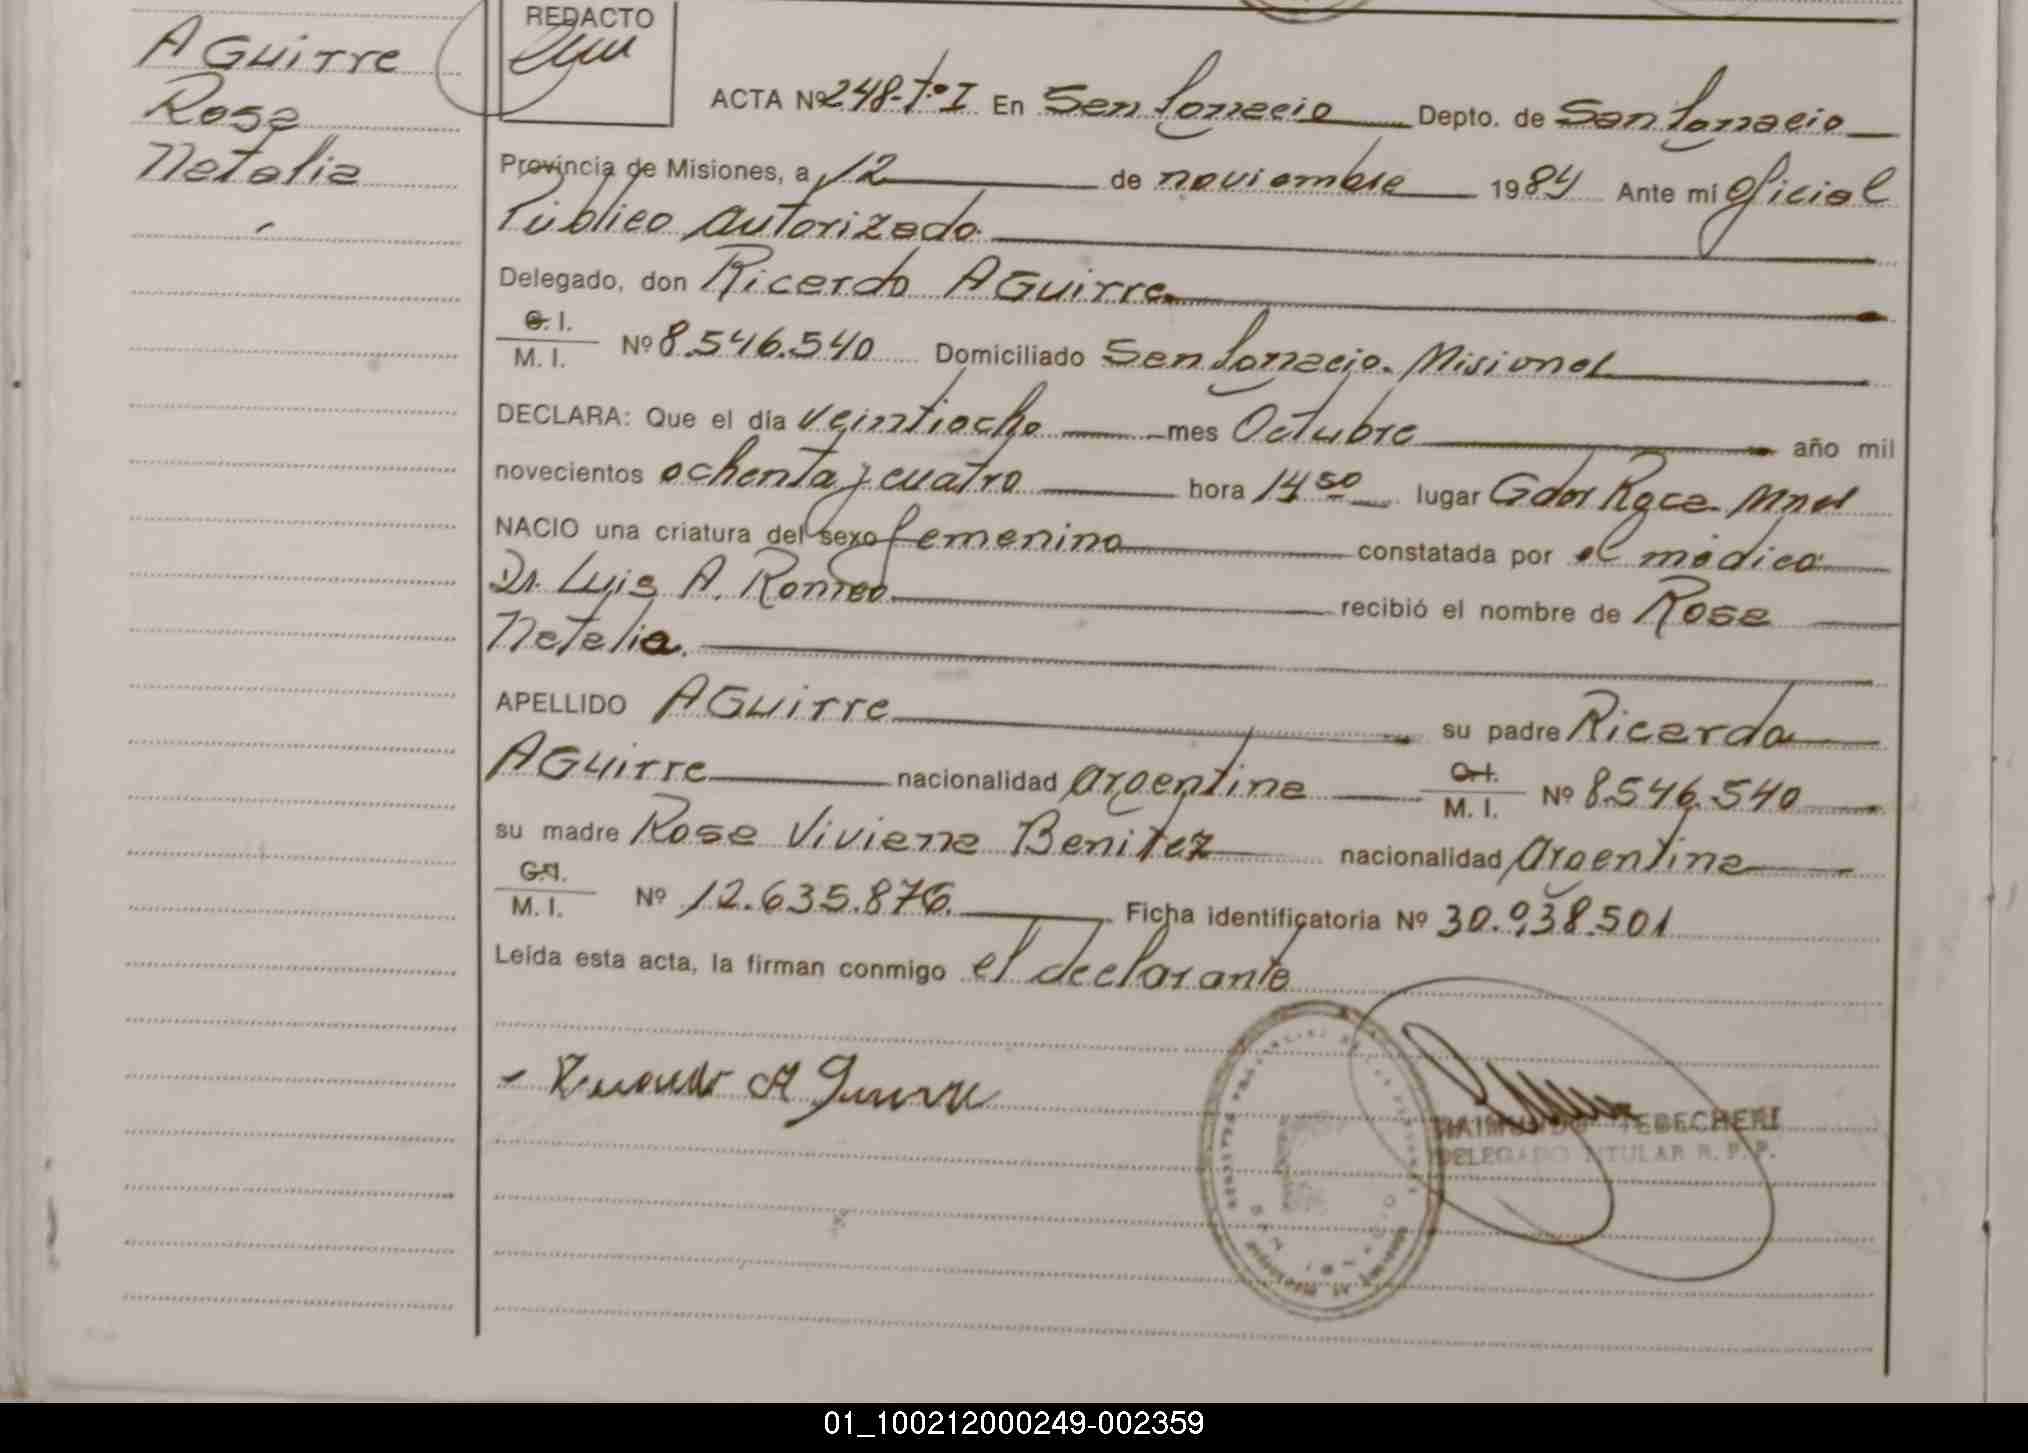 AGuirre
Rosa
Natalia
REDACTO
ACTA Nº 248-Tº I En San Ignacio Depto. de San Ignacio
Provincia de Misiones, a 12 de noviembre 1984 Ante mí Oficial
Público Autorizado
Delegado, don Ricardo AGuirre
C. I.
M. I. Nº 8.546.540 Domiciliado San Ignacio. Misiones
DECLARA: Que el día veintiocho mes Octubre año mil
novecientos ochenta y cuatro hora 14 50 lugar Gdor Roca. Mnes
NACIO una criatura del sexo femenino constatada por el médico
Dr. Luis A. Romeo recibió el nombre de Rosa
Natalia.
APELLIDO AGuirre su padre Ricardo
AGuirre nacionalidad argentina C. I.
M. I. Nº 8.546.540
su madre Rosa Viviana Benitez nacionalidad argentina
C. I.
M. I. Nº 12.635.876. Ficha identificatoria Nº 30.938.501
Leída esta acta, la firman conmigo el declarante
RAIMUNDO TEBECHERI
DELEGADO TITULAR R. P. P.
01_100212000249-002359